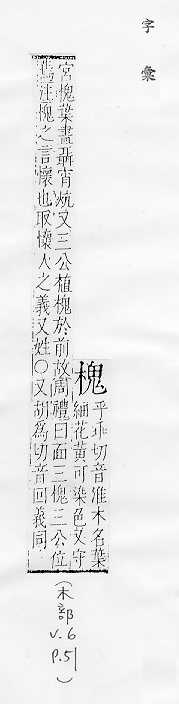 字彙
槐
乎乖切音淮木名葉
細花黃可染色又守
宮槐葉晝聶宵炕又三公植槐於前故周禮曰面三槐三公位
焉注槐之言懷也取懷人之義又姓○又胡為切音回義同
(木部
v.6
p.51)